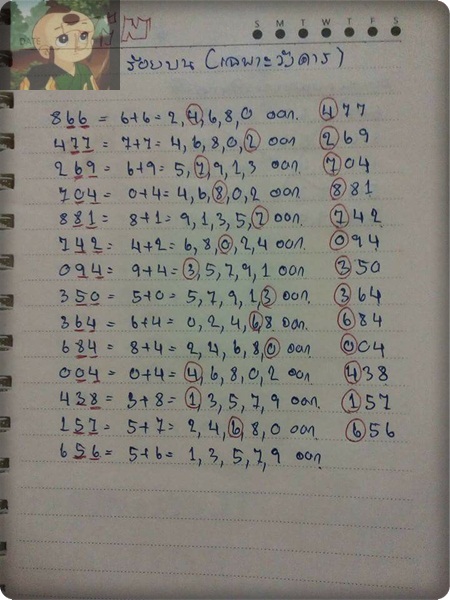 S M T W T F S
ร้อยบน (เฉพาะวังคาร)
866 = 6+6 = 2,4,6,8,0 ออก 477
477 = 7+7 = 4,6,8,0,2 ออก 269
269 = 6+9 = 5,7,9,1,3 ออก 704
704 = 0+4 = 4,6,8,0,2 ออก 881
881 = 8+1 = 9,1,3,5,7 ออก 742
742 = 4+2 = 6,8,0,2,4 ออก 094
094 = 9+4 = 3,5,7,9,1 ออก 350
350 = 5+0 = 5,7,9,1,3 ออก 364
364 = 6+4 = 0,2,4,6,8 ออก 684
684 = 8+4 = 2,4,6,8,0 ออก 004
004 = 0+4 = 4,6,8,0,2 ออก 438
438 = 3+8 = 1,3,5,7,9 ออก 157
157 = 5+7 = 2,4,6,8,0 ออก 656
656 = 5+6 = 1,3,5,7,9 ออก